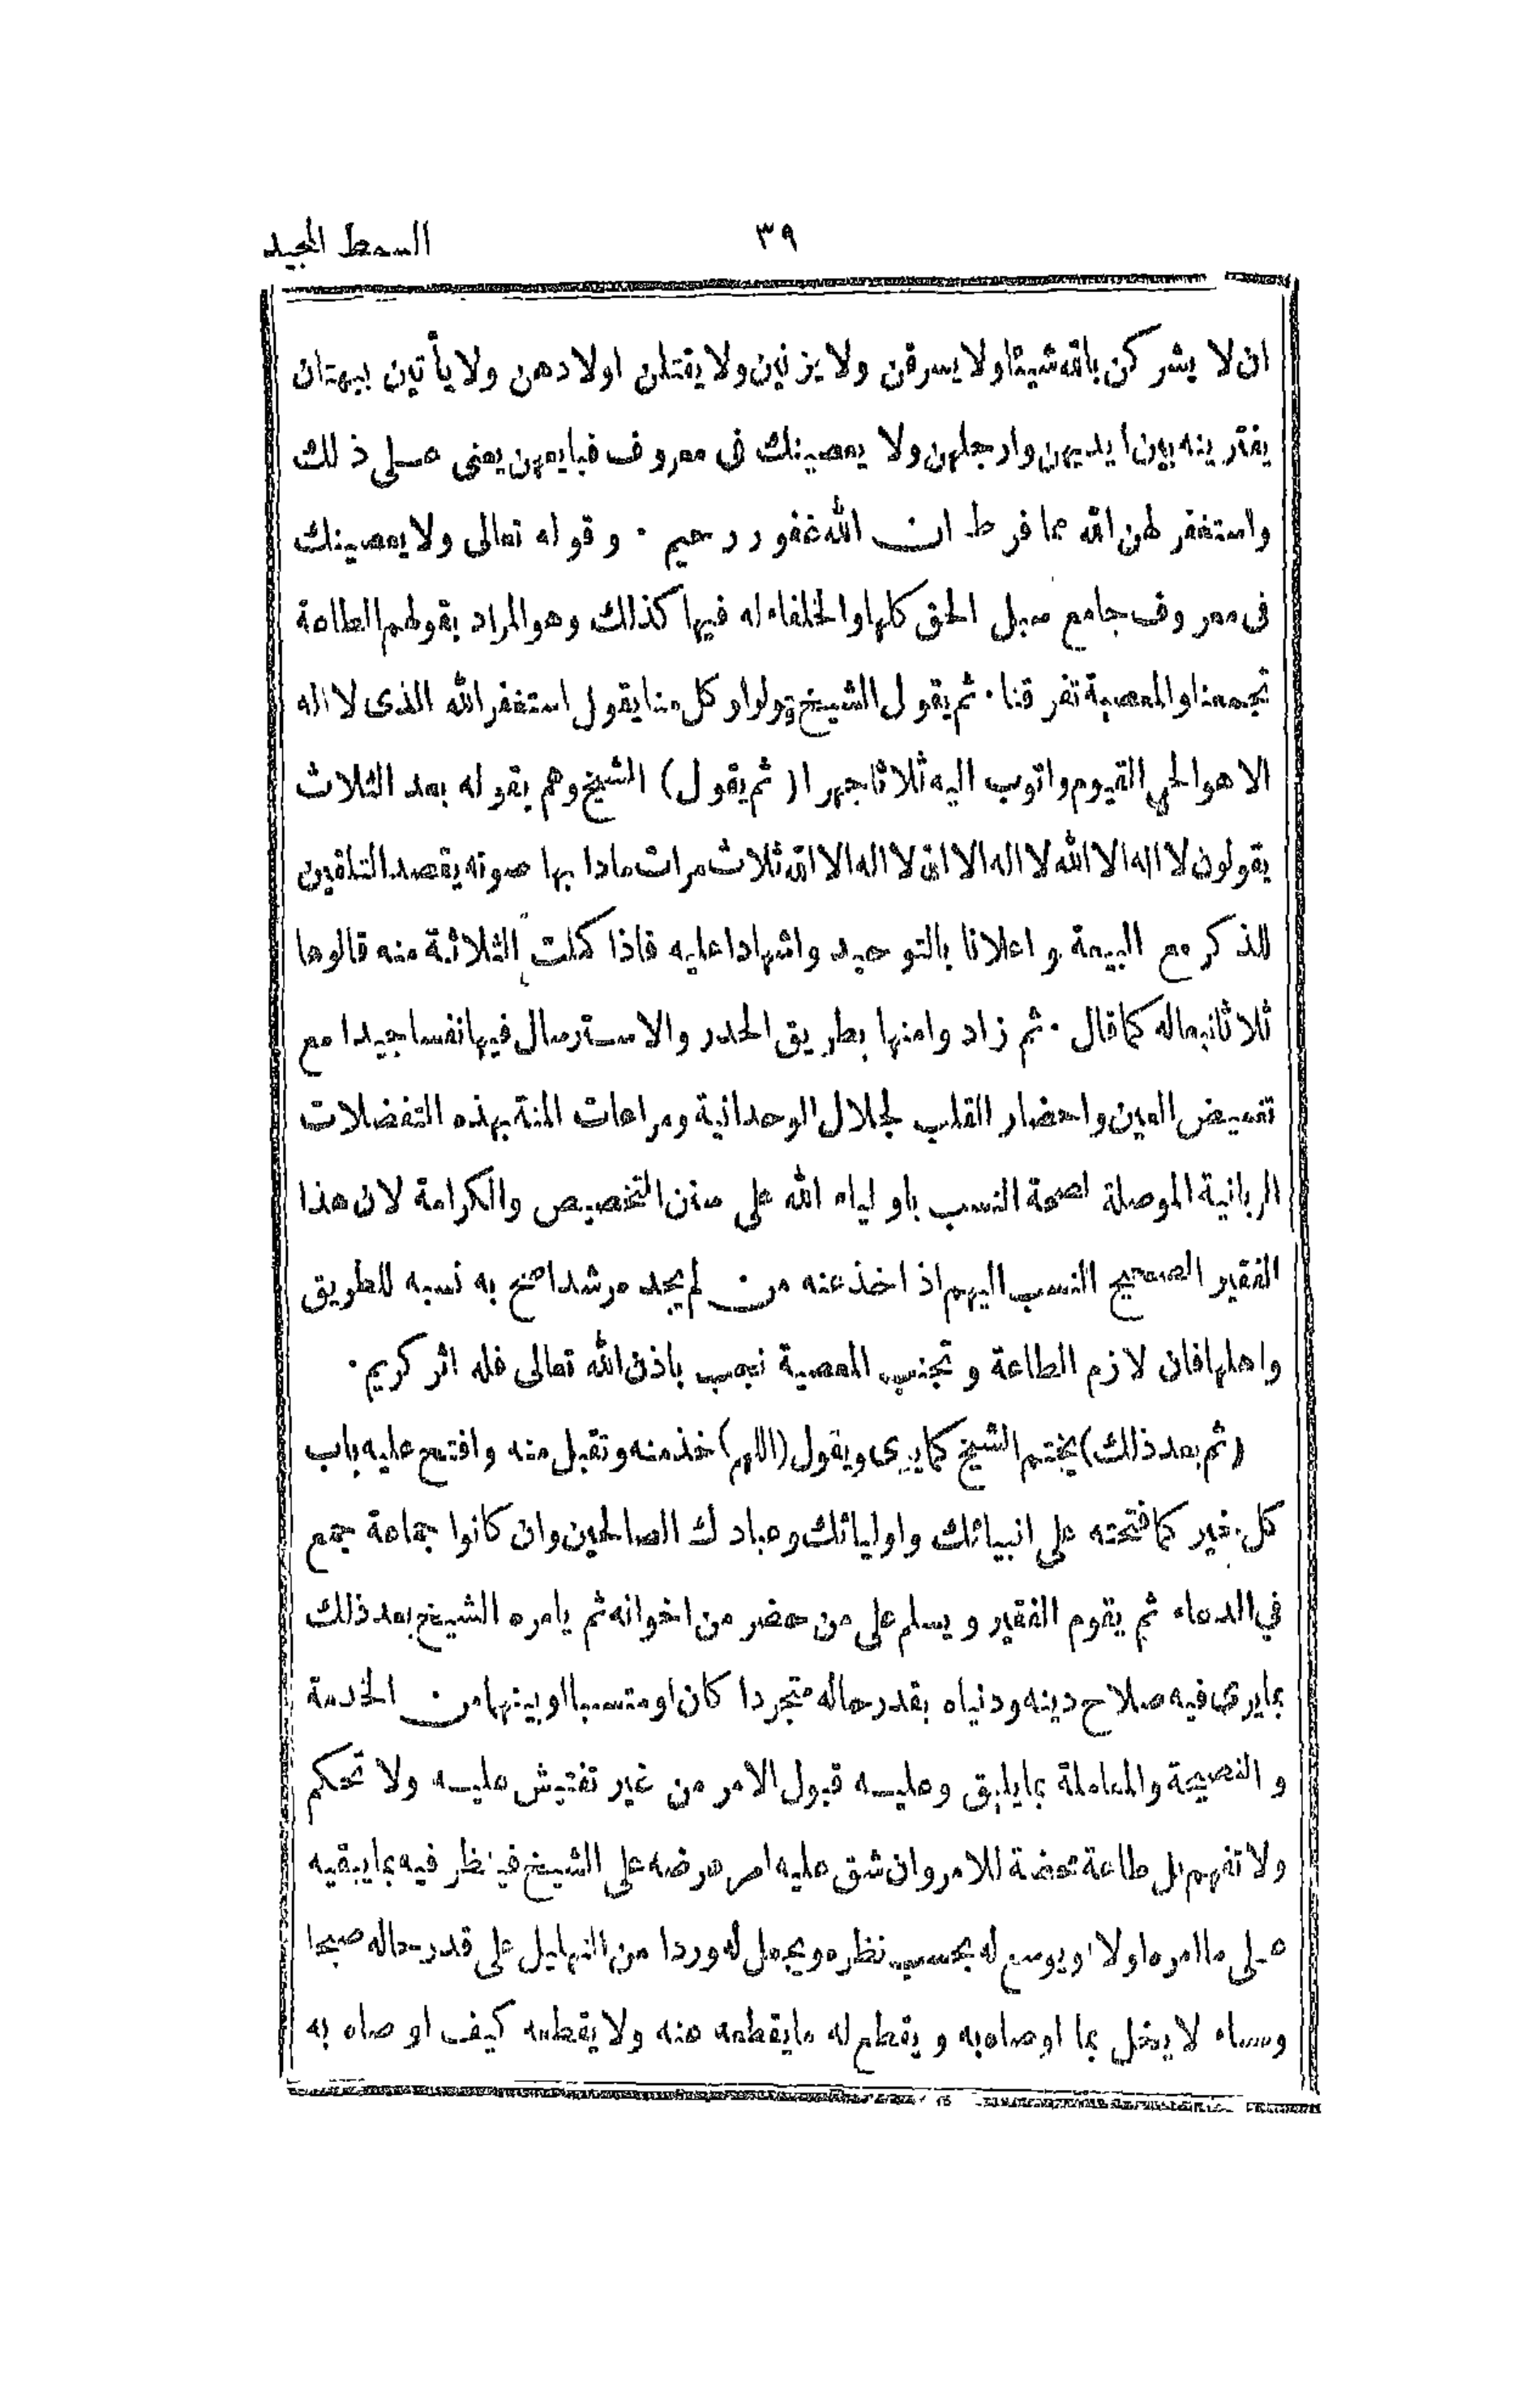 السمط المجيد
٣٩
ان لا يشركن بالله شيئا ولا يسرقن ولا يزنين ولا يقتلن اولادهن ولا يأتين ببهتان
يفترينه بين ايديهن وارجلهن ولا يعصينك فى معروف فبايعهن يعنى على ذلك
واستغفر لهن الله مما فرط ان الله غفور رحيم . وقوله تعالى ولا يعصينك
فى معروف جامع سبل الحق كلها والخلفاء له فيها كذلك وهو المراد بقولهم الطاعة
تجمعنا والمعصية تفرقنا . ثم يقول الشيخ قولوا وكل منا يقول استغفر الله الذى لا اله
الا هو الحى القيوم واتوب اليه ثلاثا جهرا (ثم يقول) الشيخ وهم بقوله بعد الثلاث
يقولون لا اله الا الله لا اله الا الله لا اله الا الله ثلاث مرات مادا بها صوته يقصد التلقين
للذكر مع البيعة و اعلانا بالتوحيد واشهادا عليه فاذا كملت الثلاثة منه قالوها
ثلاثا تبعا له كما قال . ثم زادوا منها بطريق الحدر والاسترسال فيها نفسا جيدا مع
تغميض العين واحضار القلب لجلال الوحدانية ومراعات المنة بهذه التفضلات
الربانية الموصلة لصحة النسب باولياء الله على سنن التخصيص والكرامة لان هذا
الفقير الصحيح النسب اليهم اذ اخذ عنه من لم يجد مرشدا صح به نسبه للطريق
واهلها فان لازم الطاعة و تجنب المعصية نجب باذن الله تعالى فله اثر كريم .
(ثم بعد ذلك) يختم الشيخ كما يرى ويقول (اللهم) خذ منه وتقبل منه وافتح عليه باب
كل خير كما فتحته على انبيائك واوليائك وعبادك الصالحين وان كانوا جماعة جمع
في الدعاء ثم يقوم الفقير ويسلم على من حضر من اخوانه ثم يامره الشيخ بعد ذلك
بما يرى فيه صلاح دينه ودنياه بقدر حاله متجردا كان او متسببا او بينهما من الخدمة
و النصيحة والمعاملة بما يليق وعليه قبول الامر من غير تفتيش عليه ولا تحكم
ولا تفهم بل طاعة محضة للامر وان شق عليه امر عرضه على الشيخ فينظر فيه بما يبقيه
على ما امره اولا او يوسع له بحسب نظره ويجعل له وردا من التهليل على قدر حاله صبحا
ومساء لا يخل بما اوصاه به و يقطع له ما يقطعه عنه ولا يقطعه كيف اوصاه به